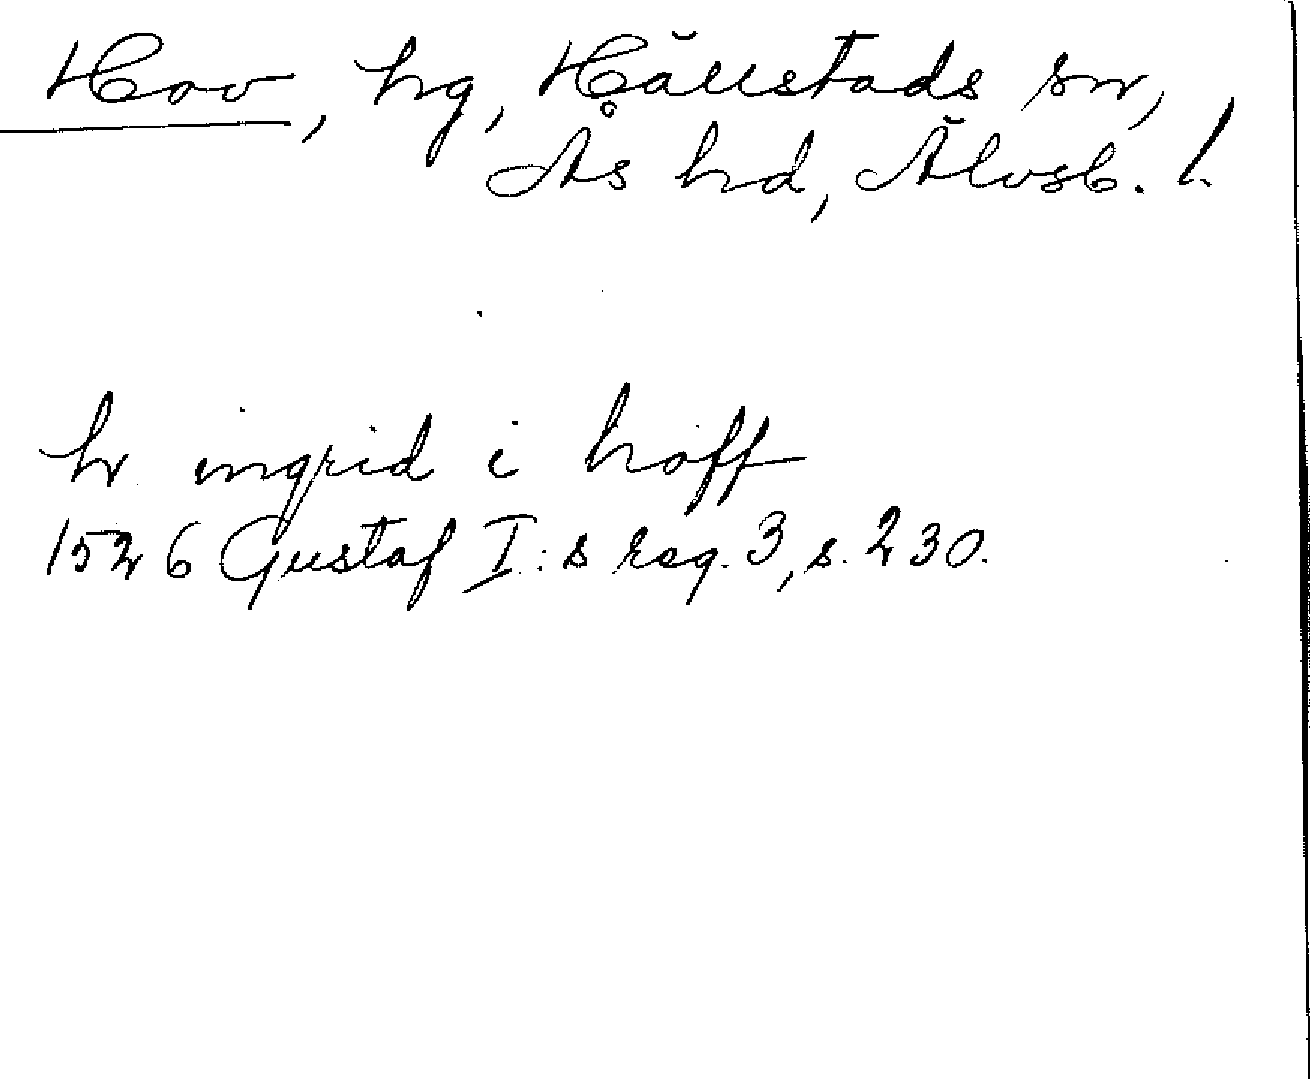 Hov, hg, Hällstads sn,
Ås hd, Älvsb. l.
h. ingrid i hoff
1526 Gustaf I:s reg. 3, s. 230.